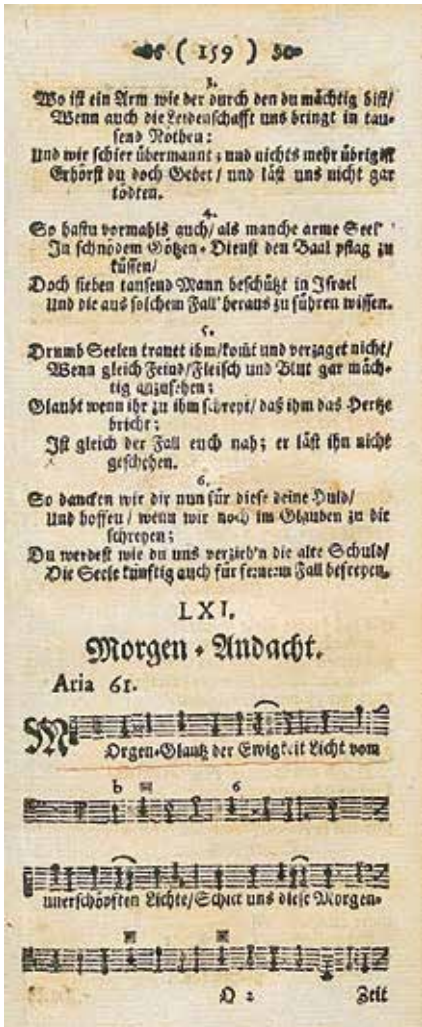 ( 159 )
3.
Wo ist ein Arm wie der durch den du mächtig bist/
Wenn auch die Leidenschafft uns bringt in tau-
send Nöthen:
Und wir schier übermannt; und nichts mehr übrig ist
Erhörst du doch Gebet/ und läst uns nicht gar
tödten.
4.
So hastu vormahls auch/ als manche arme Seel'
In schnödem Götzen-Dienst den Baal pflag zu
küssen/
Doch sieben tausend Mann beschützt in Israel
Und die aus solchem Fall' heraus zu führen wissen.
5.
Drumb Seelen trauet ihm/ komt und verzaget nicht/
Wenn gleich Feind/ Fleisch und Blut gar mäch-
tig anzusehen;
Glaubt wenn ihr zu ihm schreyt/ daß ihm das Hertze
bricht;
Ist gleich der Fall euch nah; er läst ihn nicht
geschehen.
6.
So dancken wir dir nun für diese deine Huld/
Und hoffen/ wenn wir noch im Glauben zu dir
schreyen;
Du werdest wie du uns verzieh'n die alte Schuld/
Die Seele künftig auch für fernerm Fall befreyen.
LXI.
Morgen-Andacht.
Aria 61.
MOrgen-Glantz der Ewigkeit Licht vom
b 6
unerschöpften Lichte/ Schick uns diese Morgen-
Q 2 Zeit